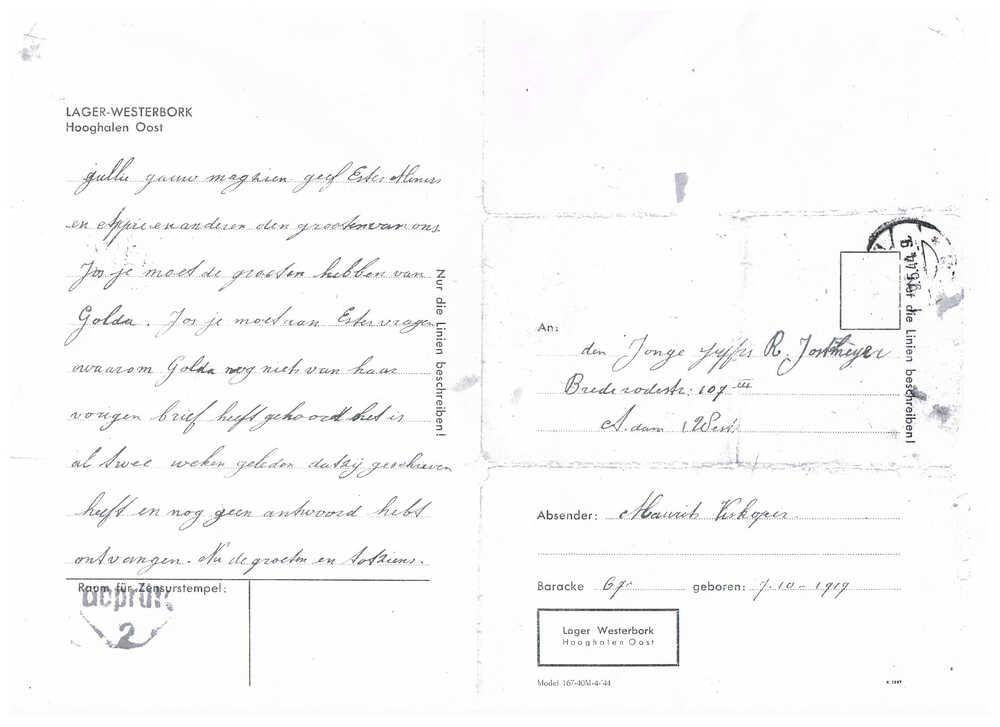 LAGER-WESTERBORK
Hooghalen Oost
jullie gauw mag zien geef Ester Moniers
en Appie en anderen den grooten van ons
Jos je moet de groeten hebben van
Golda. Jos je moet aan Ester vragen
waarom Golda nog niets van haar
vorigen brief heeft gehoord het is
al twee weken geleden dat zij geschreven
heeft en nog geen antwoord hebt
ontvangen. Nu de groeten en totziens.
Nur die Linien beschreiben!
Raum für Zensurstempel:
Geprüft
2
Nur die Linien beschreiben!
An:
den Jonge Juffr R.
Brederodestr: 107 III
A.dam West
Absender: Maurits Verkoper
Baracke 67 geboren: 7-10-1919
Lager Westerbork
Hooghalen Oost
Model 167-40M-4-'44